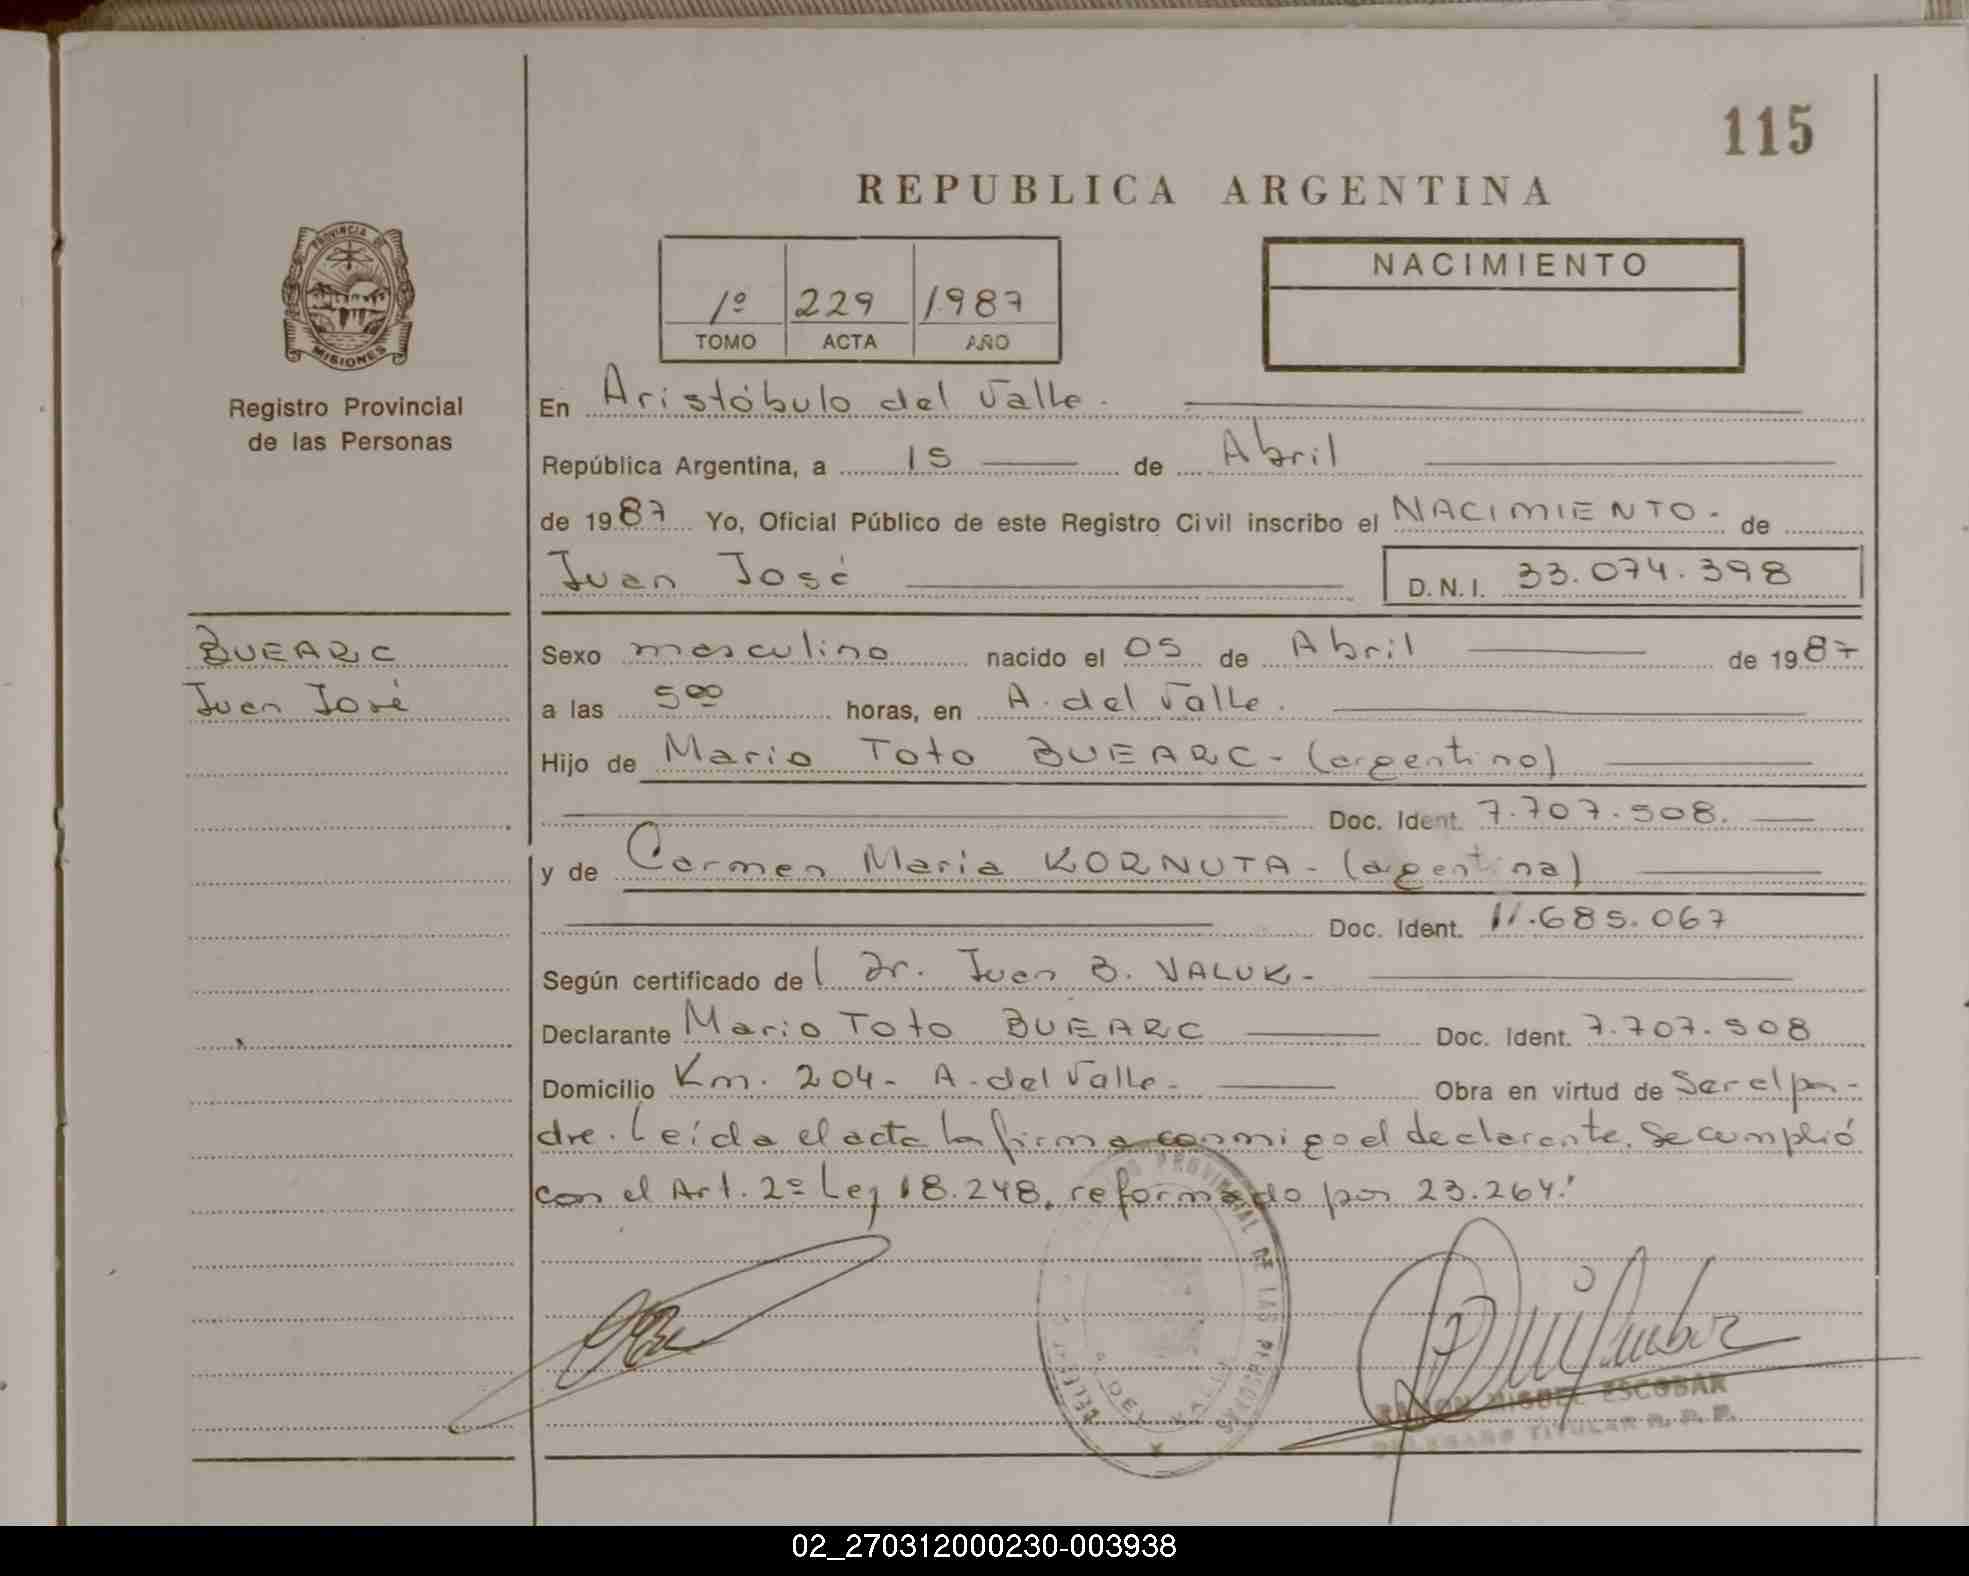 115
REPUBLICA ARGENTINA
PROVINCIA DE
MISIONES
Registro Provincial
de las Personas
1º 229 1987
TOMO ACTA AÑO
NACIMIENTO
En Aristóbulo del Valle.
República Argentina, a 15 de Abril
de 1987 Yo, Oficial Público de este Registro Civil inscribo el NACIMIENTO - de
Juan José D.N.I. 33.074.398
BUEARC
Juan José
Sexo masculino nacido el 05 de Abril de 1987
a las 5 00 horas, en A. del Valle.
Hijo de Mario Toto BUEARC - (argentino)
Doc. Ident. 7.707.508.
y de Carmen Maria KORNUTA - (argentina)
Doc. Ident. 11.685.067
Según certificado del Dr. Juan B. VALUK -
Declarante Mario Toto BUEARC Doc. Ident. 7.707.508
Domicilio Km. 204 - A. del Valle - Obra en virtud de Ser el pa-
dre. Leída el acta la firma conmigo el declarante. Se cumplió
con el Art. 2º Ley 18.248, reformado por 23.264.
PROVINCIAL DE LAS PERSONAS
A. DEL VALLE
RAMON MIGUEL ESCOBAR
DELEGADO TITULAR R. P. P.
02_270312000230-003938